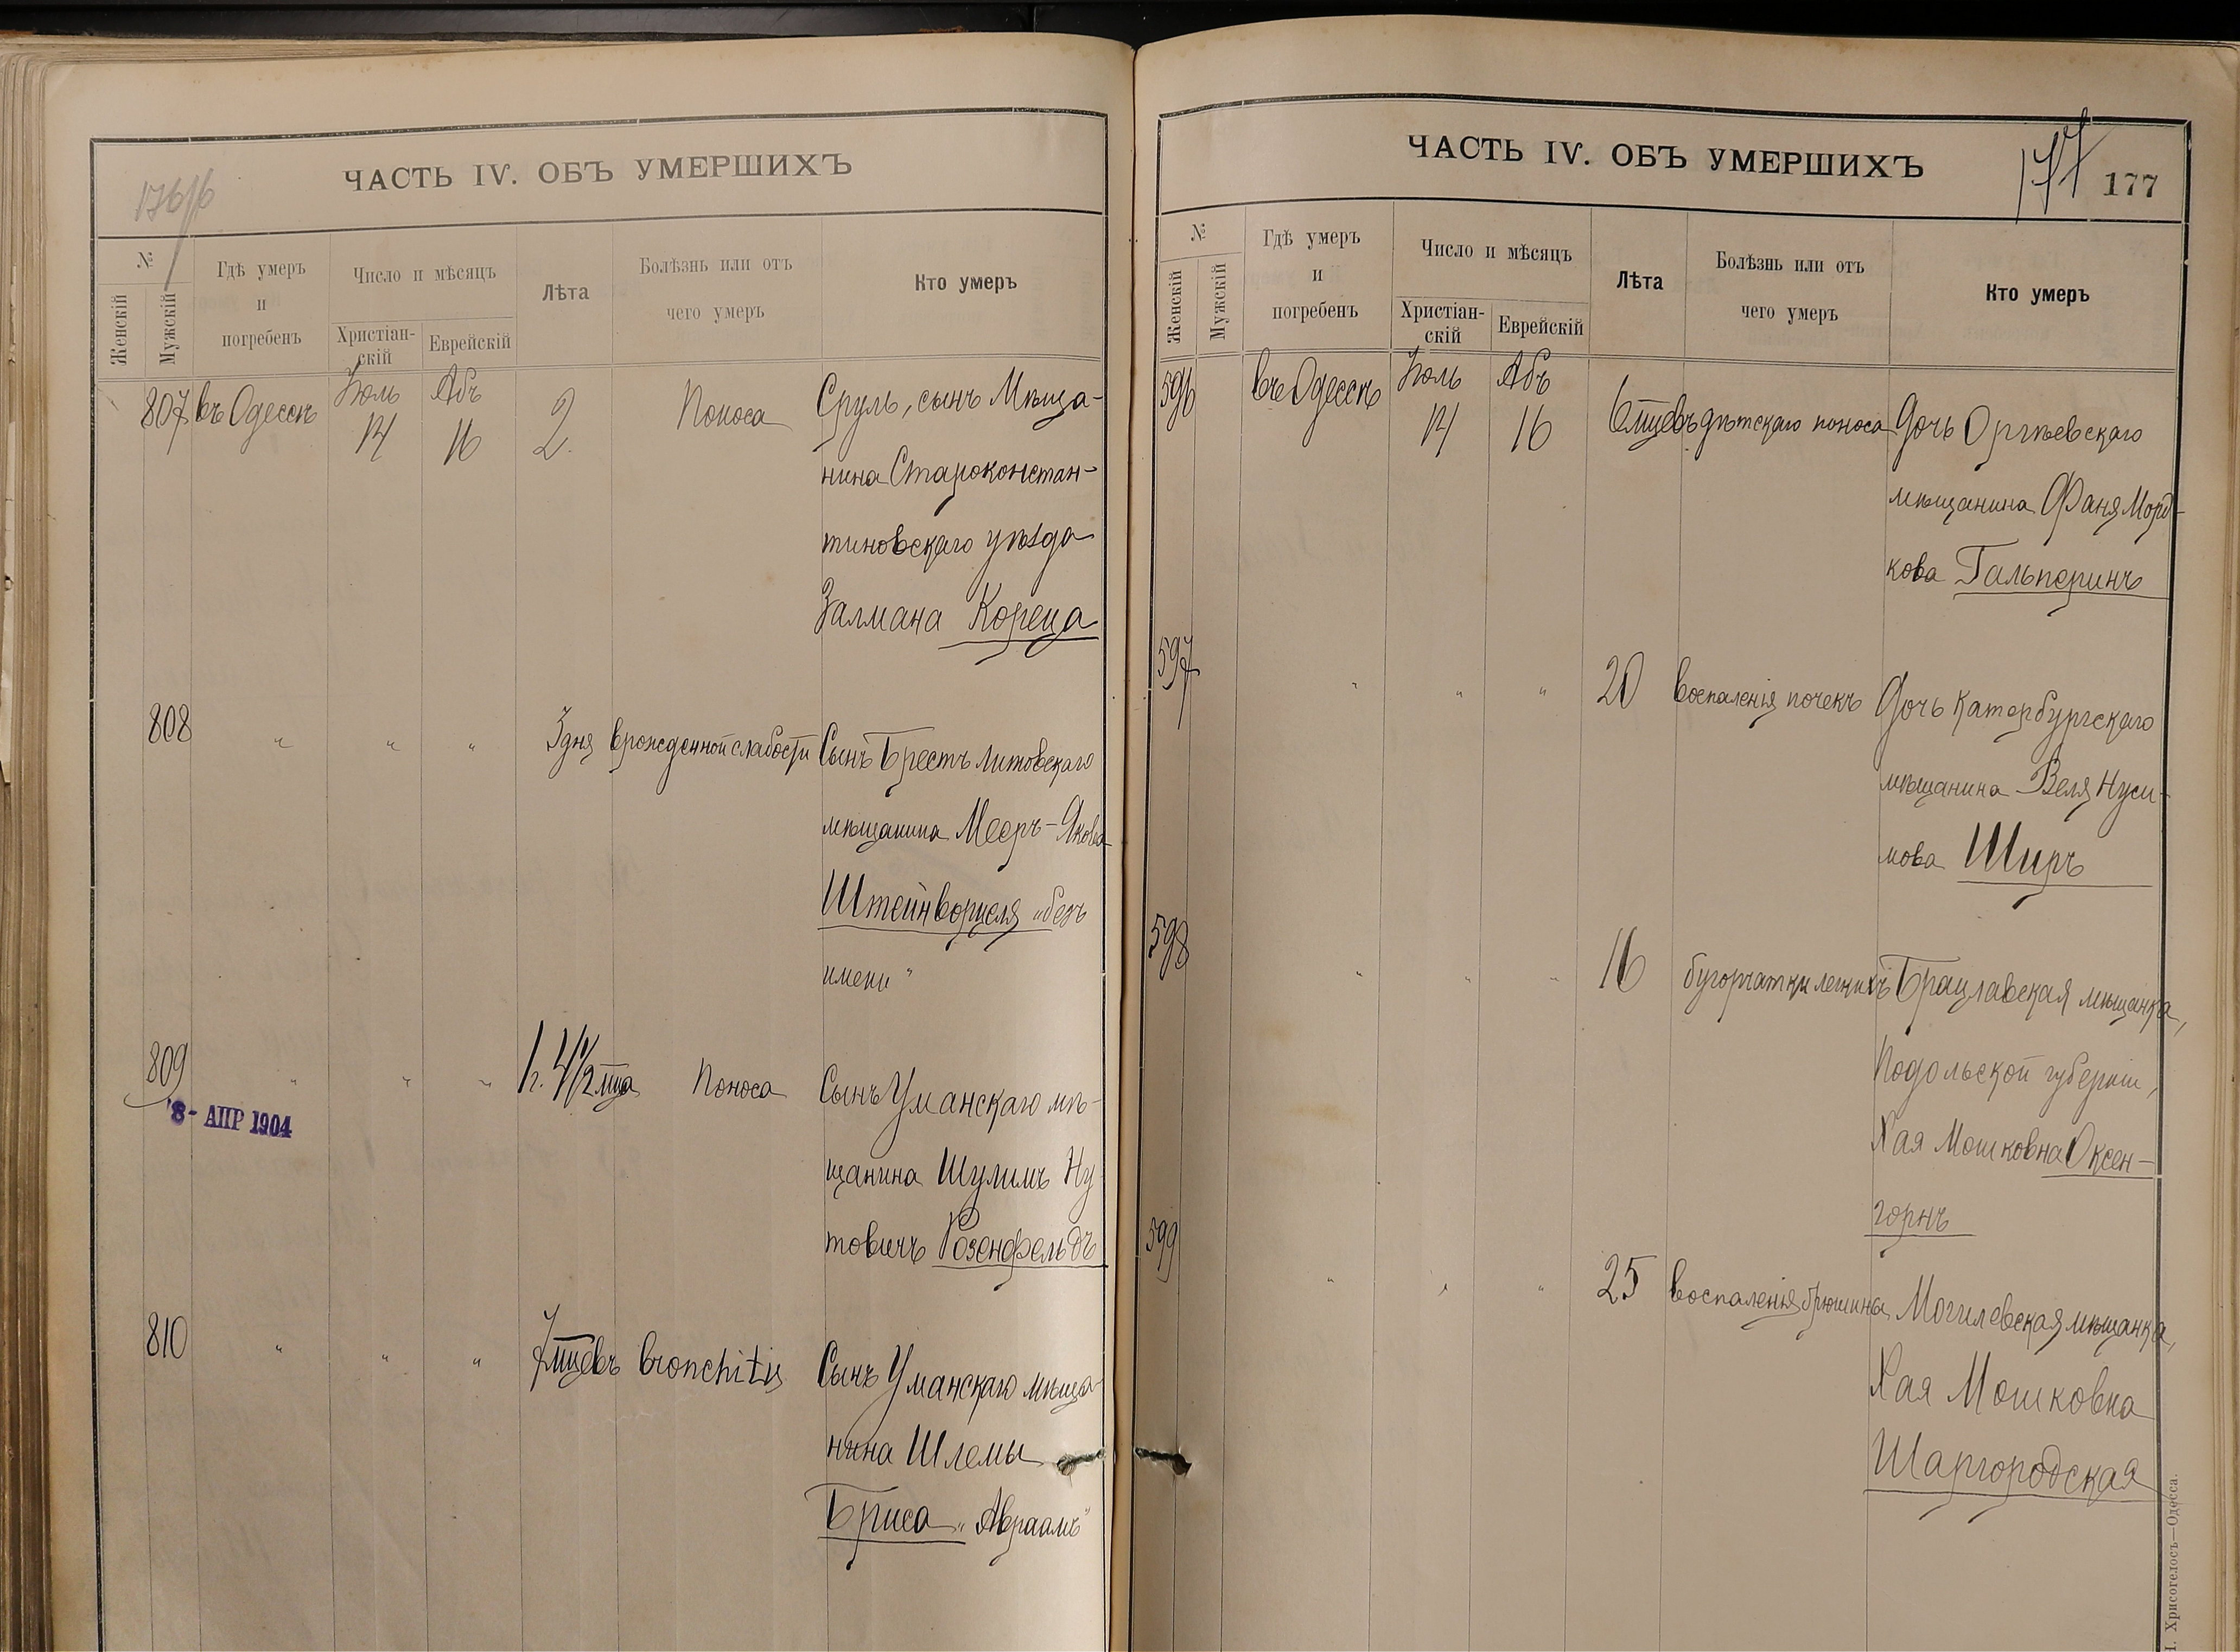 176/б
ЧАСТЬ IV. ОБЪ УМЕРШИХЪ
№
Женскій
Мужскій
Гдѣ умеръ
и
погребенъ
Число и мѣсяцъ
Христіан-
скій
Еврейскій
Лѣта
Болѣзнь или отъ
чего умеръ
Кто умеръ
807 въ Одессѣ Іюль 14 Абъ 16 2 Поноса Сруль, сынъ Мѣща-
нина Староконстан-
тиновскаго уѣзда
Залмана Кореца
808 " " " 3 дня врожденной слабости Сынъ Брестъ Литовскаго
мѣщанина Мееръ-Якова
Штейнворцеля „безъ
имени"
809 " " " 1 г. 4 1/2 мца Поноса Сынъ Уманскаго мѣ-
8- АПР 1904
щанина Шулимъ Ну
товичъ Розенфельдъ
810 " " " 7 мцевъ bronchitis Сынъ Уманскаго мѣща
нина Шлемы
Бриса „Авраамъ"
ЧАСТЬ IV. ОБЪ УМЕРШИХЪ
177
177
№
Женскій
Мужскій
Гдѣ умеръ
и
погребенъ
Число и мѣсяцъ
Христіан-
скій
Еврейскій
Лѣта
Болѣзнь или отъ
чего умеръ
Кто умеръ
596 въ Одессѣ Іюль 14 Абъ 16 6 мцевъ дѣтскаго поноса Дочь Оргѣевскаго
мѣщанина Фаня Морд-
кова Гальперинъ
597 " " " 20 воспаленія почекъ Дочь Катербургскаго
мѣщанина Веля Нуси-
мова Ширъ
598 " " " 16 бугорчатки легкихъ Брацлавская мѣщанка,
Подольской губерніи,
Хая Мошковна Оксен-
горнъ
599 " " " 25 воспаленія брюшины Могилевская мѣщанка,
Хая Мошковна
Шаргородская
Хрисогелосъ—Одесса.